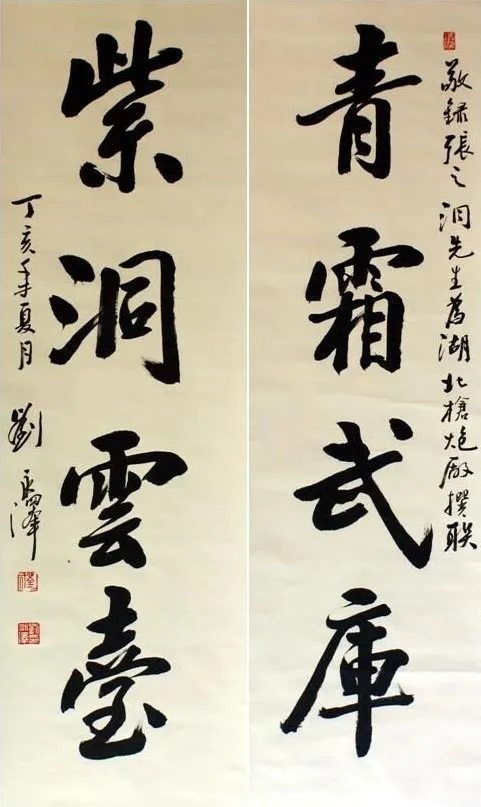 敬録張之洞先生為湖北槍炮廠撰联
青霜武庫
紫洞雲臺
丁亥年夏月
劉